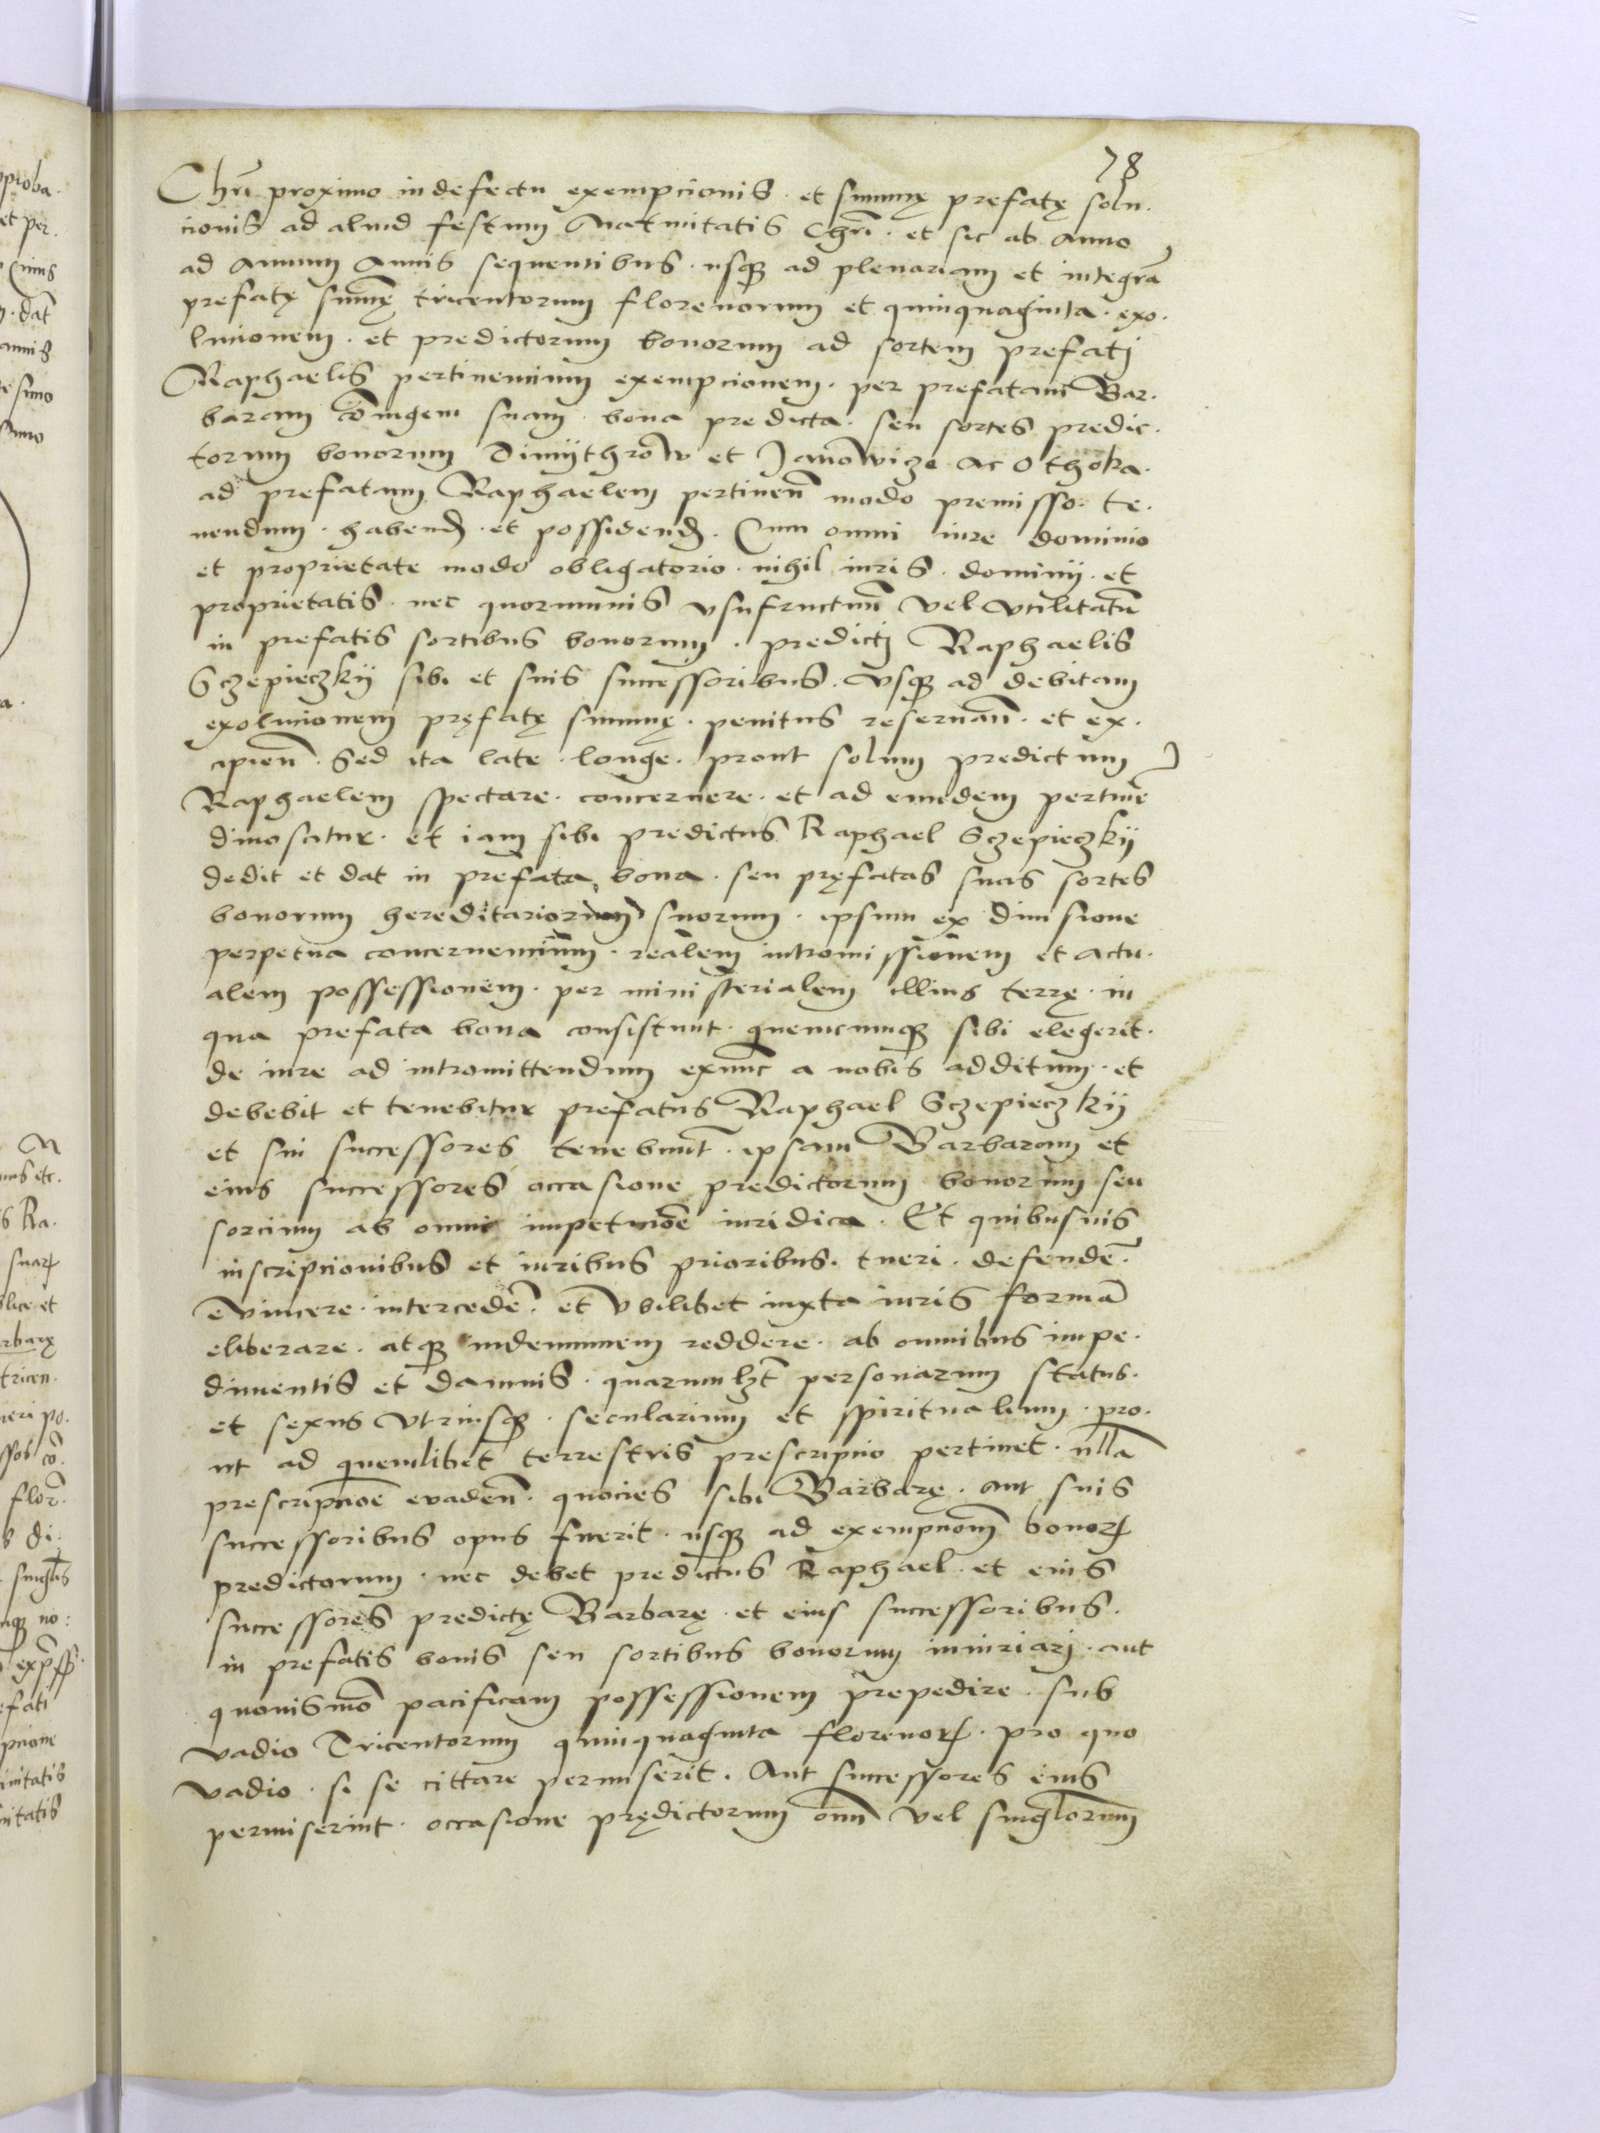 78
Chr̃i proximo in defectu exempcionis · et summę prefatę solu·
cionis ad aliud festum Natiuitatis Chr̃i · et sic ab Anno
ad Annum Annis sequentibus · usq3 ad plenariam et integrã
prefatę sum̃ę tricentorum florenorum et quinquaginta · exo·
lucionem · et predictorum bonorum ad sortem prefatj
Raphaelis pertinencium exempcionem · per prefatam Bar·
baram cõiugem suam · bona predicta · seu sortes predic·
torum bonorum Dimijthrow et Janowicze Ac Othoka·
ad prefatum Raphaelem pertineñ modo premisso · te·
nendum · habend̃ · et possidend̃ · Cum omni iure dominio
et proprietate modo obligatorio · nihil iuris · dominij · et
proprietatis · nec quorumuis vsufructuũ vel vtilitatũ
in prefatis sortibus bonorum · predictj Raphaelis
Sczepieczkij sibi et suis successoribus · vsq3 ad debitam
exolucionem pręfatę summę · penitus reseruañ · et ex·
cipieñ · Sed ita late · longe · prout solum predictum
Raphaelem spectare · concernere · et ad eundem pertinẽ
dinoscitur · et iam sibi predictus Raphael Sczepieczkij
dedit et dat in prefata bona · seu pręfatas suas sortes
bonorum hereditariorum suorum · ipsum ex diuisione
perpetua concernencium · realem intromissionem et actu·
alem possessionem · per ministerialem illius terrę · in
qua prefata bona consistunt · quemcunq3 sibi elegerit ·
de iure ad intromittendum exnunc a nobis additum · et
debebit et tenebitur prefatus Raphael Sczepieczkij
et sui successores tenebunt̃ · ipsam Barbaram et
eius successores occasione predictorum bonorum seu
sorcium ab omni impeticiõe iuridica · Et quibusuis
inscripcionibus et iuribus prioribus · tueri · defendẽ ·
euincere · intercedẽ · et vbilibet iuxta iuris formã
eliberare · atq3 indemnem reddere · ab omnibus impe·
dimentis et damnis · quarumlz̃t personarum status ·
et sexus vtriusq3 · secularium et spiritualium · pro·
ut ad quemlibet terrestris prescripcio pertinet · nllã
prescripcioẽ euadeñ · quocies sibi Barbarę · aut suis
successoribus opus fuerit · usq3 ad exempcioñm bonoꝝ
predictorum · nec debet predictus Raphael · et eius
successores predictę Barbarę · et eius successoribus ·
in prefatis bonis seu sortibus bonorum iniuriarj · aut
quouismõ pacificam possessionem prepedire · sub
vadio Tricentorum quinquaginta florenoꝝ · pro quo
vadio · si se cittare permiserit · Aut successores eius
permiserint · occasione prędictorum om̃i vel singlorum̃